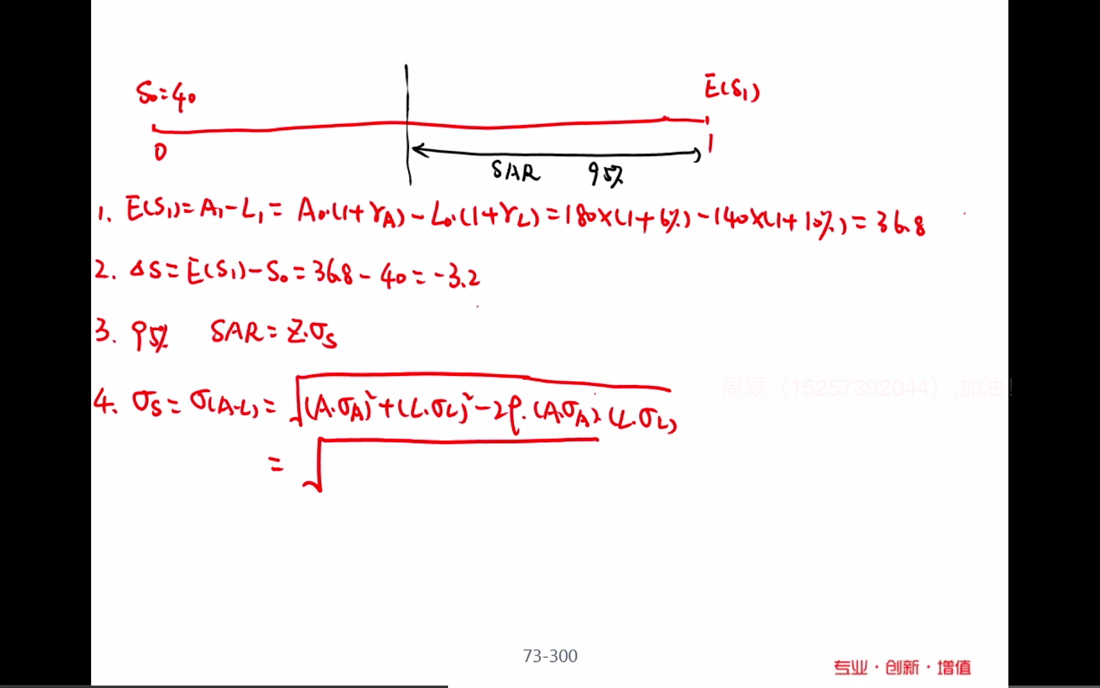 S₀=40
E(S₁)
0
1
SAR 95%
1. E(S₁)=A₁-L₁=A₀·(1+r_A)-L₀·(1+r_L)=180×(1+6%)-140×(1+10%)=36.8
2. ΔS=E(S₁)-S₀=36.8-40=-3.2
3. 95% SAR=Z·σ_S
4. σ_S=σ(A-L)=√(A·σ_A)²+(L·σ_L)²-2ρ·(A·σ_A)·(L·σ_L)
=√
周颖（15257392044）,加油!
73-300
专业·创新·增值